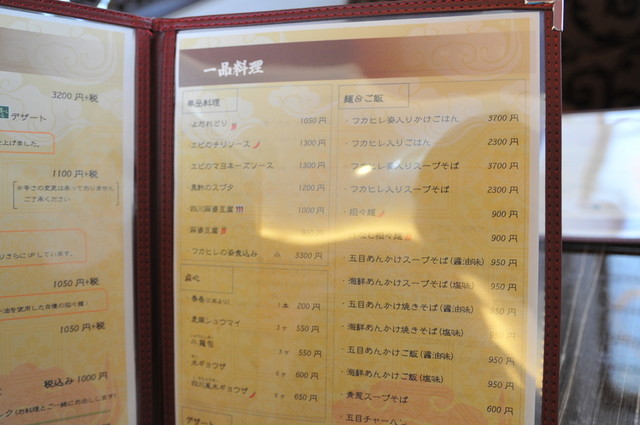 3200円+税
デザート
上げました。
1100円+税
※辛さの変更は承っておりません
ご了承ください
さらにUPしています。
1050円+税
を使用した自慢の担々麺!
1050円+税
税込み1000円
(お料理とご一緒にお出しします)
一品料理
単品料理
・よだれどり 1050円
・エビのチリソース 1300円
・エビのマヨネーズソース 1300円
・黒酢のスブタ 1200円
・四川麻婆豆腐 1000円
・麻婆豆腐
・フカヒレの姿煮込み 3300円
点心
・春巻 1本 200円
・焼売シュウマイ 3ケ 550円
・小籠包 3ケ 550円
・水ギョウザ 6ケ 600円
・四川風水ギョウザ 6ケ 650円
デザート
麺&ご飯
・フカヒレ姿入りかけごはん 3700円
・フカヒレ入りかけごはん 2300円
・フカヒレ姿入りスープそば 3700円
・フカヒレ入りスープそば 2300円
・担々麺 900円
担々麺 900円
・五目あんかけスープそば(醤油味) 950円
・海鮮あんかけスープそば(塩味) 950円
・五目あんかけ焼きそば(醤油味) 950円
・海鮮あんかけ焼きそば(塩味) 950円
・五目あんかけご飯(醤油味) 950円
・海鮮あんかけご飯(塩味) 950円
・青菜スープそば 600円
・五目チャーハン